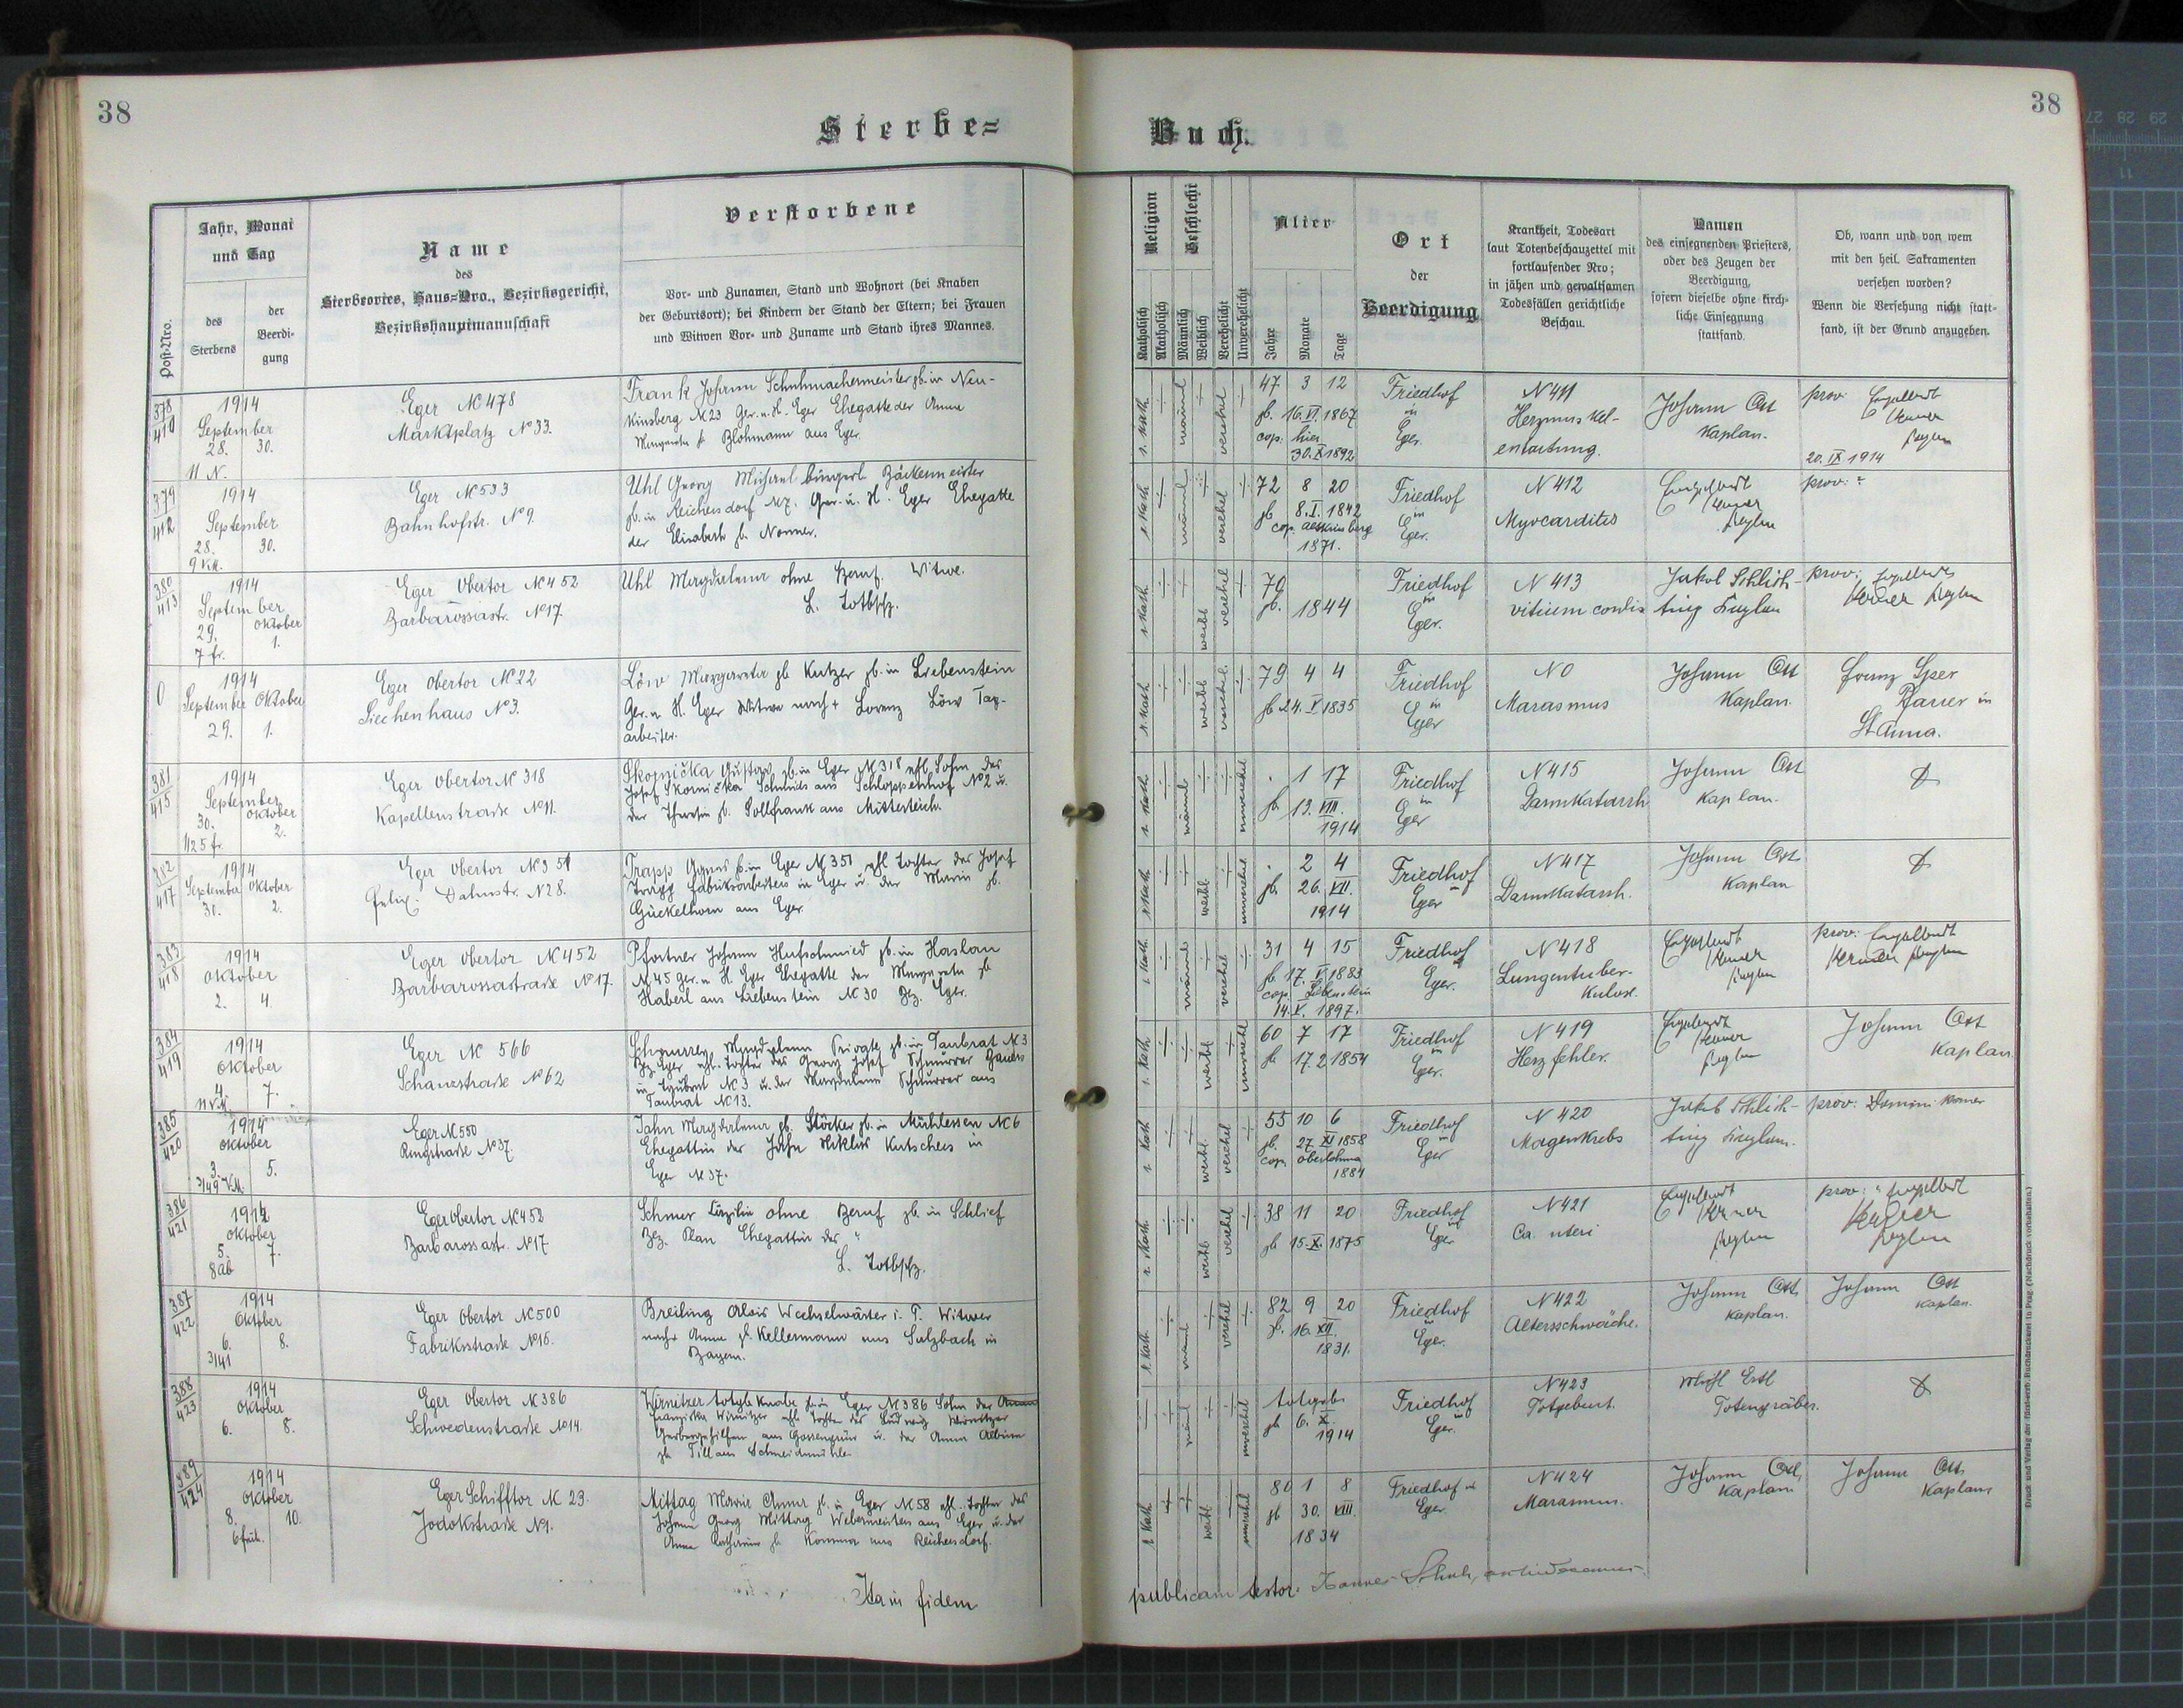 38
38
Sterbe=
Buch.
Post-Nro.
Jahr, Monat
und Tag
des
Sterbens
der
Beerdi-
gung
Name
des
Sterbeortes, Haus=Nro., Bezirksgericht,
Bezirkshauptmannschaft
Verstorbene
Vor- und Zunamen, Stand und Wohnort (bei Knaben
der Geburtsort); bei Kindern der Stand der Eltern; bei Frauen
und Witwen Vor- und Zuname und Stand ihres Mannes.
Religion
Katholisch
Akatholisch
Geschlecht
Männlich
Weiblich
Verehelicht
Unverehelicht
Alter
Jahre
Monate
Tage
Ort
der
Beerdigung
Krankheit, Todesart
laut Totenbeschauzettel mit
fortlaufender Nro;
in jähen und gewaltsamen
Todesfällen gerichtliche
Beschau.
Namen
des einsegnenden Priesters,
oder des Zeugen der
Beerdigung,
sofern dieselbe ohne kirch-
liche Einsegnung
stattfand.
Ob, wann und von wem
mit den heil. Sakramenten
versehen worden?
Wenn die Versehung nicht statt-
fand, ist der Grund anzugeben.
378
410
1914
September
28. 30.
11 N.
Eger N 478
Marktplatz No 33.
Frank Johann Schuhmachermeister gb. in Neu-
Kinsberg N 23 Ger. u. H. Eger Ehegatte der Anna
Margareta gb. Blohmann aus Eger.
r. Kath. männl verehel
47 3 12
gb. 16. VI. 1867
cop. hier
30. X 1892
Friedhof
in
Eger.
N 411
Herzmuskel-
entartung.
Johann Ott
Kaplan.
prov. Engelbert
20. IX 1914
379
412
1914
September
28. 30.
9 V.M.
Eger N 533
Bahnhofstr. No 9.
Uhl Georg Michael bürgerl. Bäckermeister
gb. in Reichersdorf N 7. Ger. u. H. Eger Ehegatte
der Elisabeth gb. Nonner.
r. Kath männl verehel
72 8 20
gb. 8. I. 1842
cop. Altkinsberg
1871.
Friedhof
in
Eger.
N 412
Myocarditis
Engelbert
prov:
380
413
1914
September
29. Oktober
1.
7 fr.
Eger Obertor N 452
Barbarossastr. No 17.
Uhl Magdalena ohne Beruf. Witwe.
L. Totbschz.
r. Kath. weibl verehel
70
gb. 1844
Friedhof
in
Eger.
N 413
vitium cordis
Jakob Schlich-
ting Kaplan
prov: Engelbert
0
1914
September Oktober
29. 1.
Eger Obertor No 22
Siechenhaus No 3.
Löw Margareta gb Kutzer gb. in Liebenstein
Ger. u. H. Eger Witwe nach + Lorenz Löw Tag-
arbeiter.
r. Kath weibl verehel.
79 4 4
gb 24. V. 1835
Friedhof
in
Eger
N 0
Marasmus
Johann Ott
Kaplan.
Franz
Pfarrer in
St Anna.
381
415
1914
September
30. Oktober
2.
1/25 fr.
Eger Obertor N 318
Kapellenstrasse No 11.
Skornička Gustav gb. in Eger N 318 ehl. Sohn des
Josef Skornička Schmieds aus Schloppenhof No 2 u.
der Theresia gb. Sollfrank aus Mitterteich.
r. Kath. männl unverehel
1 17
gb. 13. VIII.
1914
Friedhof
in
Eger
N 415
Darmkatarrh
Johann Ott
Kaplan.
382
417
1914
September Oktober
30. 2.
Eger Obertor N 351
Felix Dahnstr. N 28.
Trapp Agnes gb. in Eger N 351 ehl Tochter des Josef
Trapp Fabriksarbeiters in Eger u. der Maria gb.
Gückelhorn aus Eger.
r. Kath. weibl. unverehel
2 4
gb. 26. VII.
1914
Friedhof
in
Eger
N 417
Darmkatarrh.
Johann Ott
Kaplan
383
418
1914
Oktober
2. 4.
Eger Obertor N 452
Barbarossastrasse No 17.
Pfortner Johann Hufschmied gb. in Haslau
N 45 Ger. u. H. Eger Ehegatte der Margareta gb
Haberl aus Liebenstein N 30 Bz. Eger.
r. Kath männl verehel
31 4 15
gb. 17. V. 1883
cop. Liebenstein
14. V. 1897.
Friedhof
in
Eger.
N 418
Lungentuber-
kulose.
Engelbert
prov. Engelbert
384
419
1914
Oktober
4. 7.
11 V.M.
Eger N 566
Schanzstrasse No 62
Schnurrer Magdalena Private gb. in Taubrat N 3
Bz. Eger ehl. Tochter des Georg Josef Schnurrer
in Taubrat N 3 u. der Magdalena Schnurrer aus
Taubrat No 13.
r. Kath. weibl unverehl
60 7 17
gb 17. 2 1854
Friedhof
in
Eger.
N 419
Herzfehler.
Engelbert
Johann Ott
Kaplan
385
420
1914
Oktober
3. 5.
3/49 V.M.
Eger N 550
Ringstrasse No 37.
Jahn Magdalena gb. Stöcker gb. in Mühlessen N 6
Ehegattin des Jahn Niklas Kutschers in
Eger N 37.
r. Kath weibl. verehel
55 10 6
gb. 27. XI 1858
cop. Oberlohma
1884
Friedhof
in
Eger
N 420
Magenkrebs
Jakob Schlich-
ting Kaplan.
prov:
386
421
1914
Oktober
5. 7.
8 ab
Eger Obertor N 452
Barbarossastr. No 17
Schmer Cäzilia ohne Beruf gb. in Schlief
Bez. Plan Ehegattin des "
L. Totbschz.
r. Kath weibl verehel
38 11 20
gb 15. X. 1875
Friedhof
in
Eger
N 421
Ca. uteri
Engelbert
prov: Engelbert
387
422
1914
Oktober
6. 8.
3/41
Eger Obertor N 500
Fabrikstrasse No 16.
Breiling Alois Wechselwärter i. P. Witwer
nach Anna gb. Kellermann aus Sulzbach in
Bayern.
r. Kath männl verehel
82 9 20
gb. 16. XII.
1831.
Friedhof
in
Eger.
N 422
Altersschwäche.
Johann Ott
Kaplan.
Johann Ott
Kaplan.
388
423
1914
Oktober
6. 8.
Eger Obertor N 386
Schwedenstrasse No 14.
Wirnitzer totgb. Knabe gb. in Eger N 386 Sohn der
Franziska Wirnitzer ehl. Tochter des Ludwig Wirnitzer
Gerbergehilfen aus Gossengrün u. der Anna Albina
gb Till aus Schneidmühle
männl unverehel
totgeb.
gb 6. X.
1914
Friedhof
in
Eger.
N 423
Totgeburt.
Ertl
Totengräber.
389
424
1914
Oktober
8. 10.
6 früh.
Eger Schifftor N 23.
Jodokstrasse No 1.
Mittag Maria Anna gb. in Eger N 58 ehl. Tochter des
Johann Georg Mittag Webermeisters aus Eger u. der
Anna Katharina gb Komma aus Reichersdorf.
r. Kath. weibl unverehel
80 1 8
gb 30. VIII.
1834
Friedhof in
Eger.
N 424
Marasmus.
Johann Ott,
Kaplan
Johann Ott
Kaplan
Ita in fidem
publicam testor.
Druck und Verlag der fürsterzb. Buchdruckerei in Prag. (Nachdruck vorbehalten.)